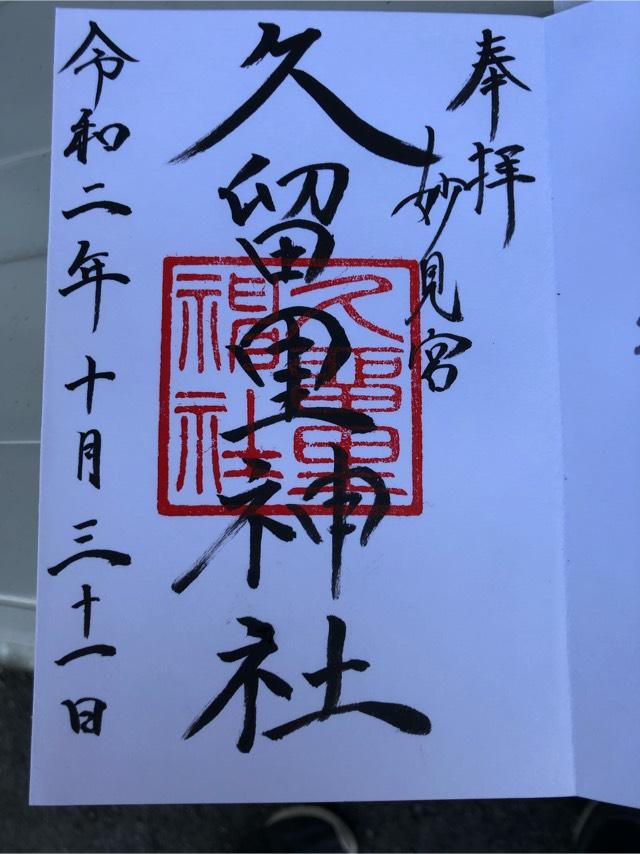 奉拝
妙見宮
久留里神社
久留里
神社
令和二年十月三十一日